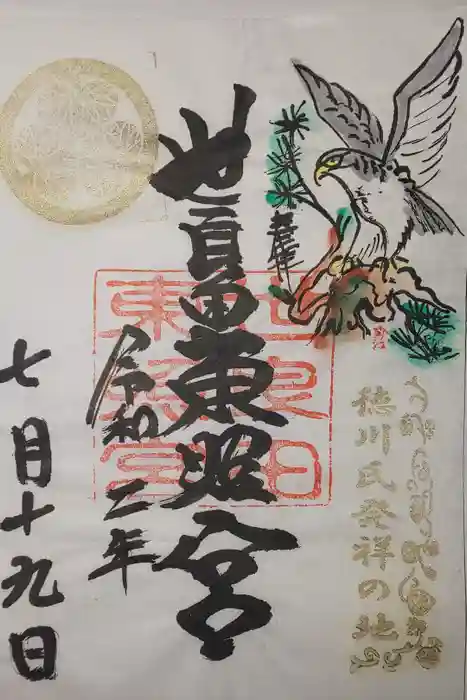 奉拝
徳川氏発祥の地
世良田東照宮
世良田
東照宮
令和二年
七月十九日